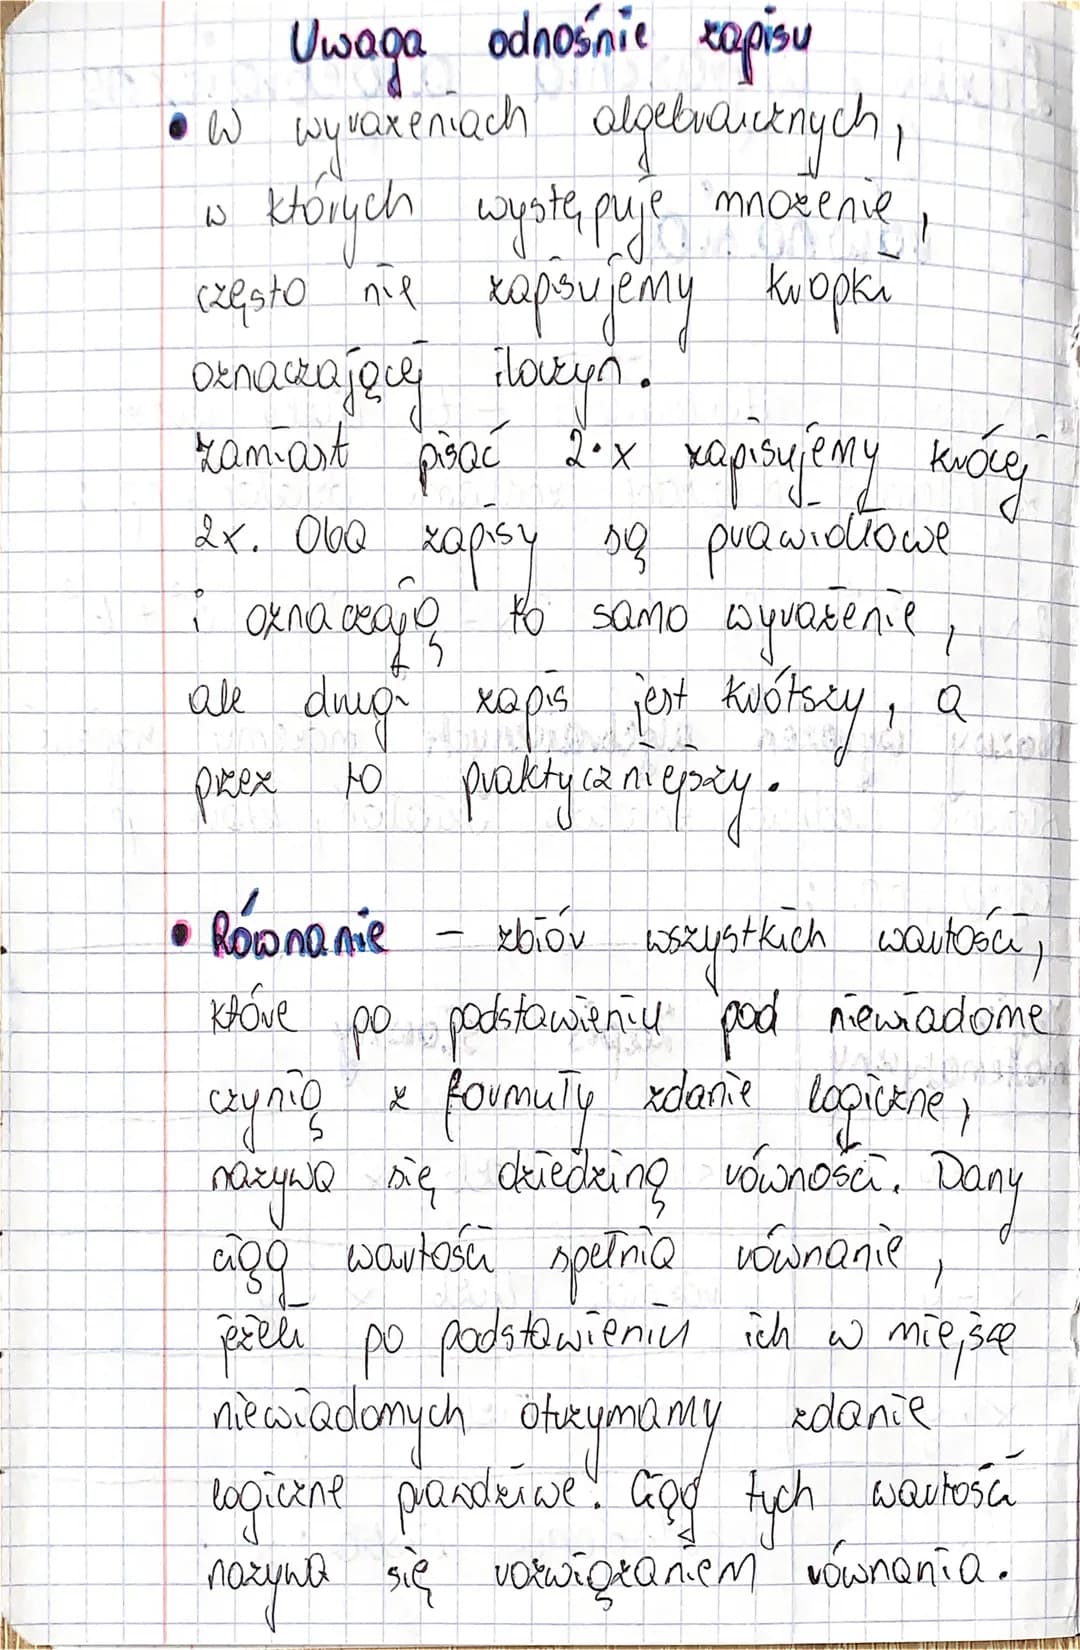 Uwaga odnośnie zapisu
• W wyrażeniach algebraicznych,
w których występuje mnożenie,
często nie zapisujemy kropki
oznaczającej iloczyn.
Zamiast pisać 2·x zapisujemy krócej
2x. Oba zapisy są prawidłowe
i oznaczają to samo wyrażenie,
ale drugi zapis jest krótszy, a
przez to praktyczniejszy.
• Równanie – zbiór wszystkich wartości,
które po podstawieniu pod niewiadome
czynią z formuły zdanie logiczne,
nazywa się dziedziną równości. Dany
ciąg wartości spełnia równanie,
jeżeli po podstawieniu ich w miejsce
niewiadomych otrzymamy zdanie
logiczne prawdziwe. Ciąg tych wartości
nazywa się rozwiązaniem równania.